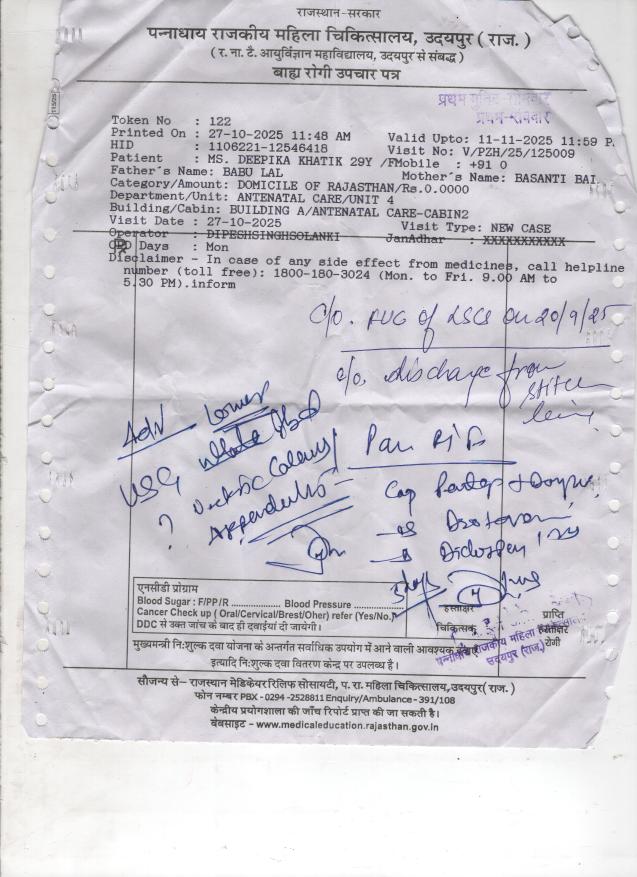 राजस्थान-सरकार
पन्नाधाय राजकीय महिला चिकित्सालय, उदयपुर ( राज. )
( र. ना. टै. आयुर्विज्ञान महाविद्यालय, उदयपुर से संबद्ध )
बाह्य रोगी उपचार पत्र
Token No : 122
Printed On : 27-10-2025 11:48 AM Valid Upto: 11-11-2025 11:59 P.
HID : 1106221-12546418 Visit No: V/PZH/25/125009
Patient : MS. DEEPIKA KHATIK 29Y /FMobile : +91 0
Father's Name: BABU LAL Mother's Name: BASANTI BAI
Category/Amount: DOMICILE OF RAJASTHAN/Rs.0.0000
Department/Unit: ANTENATAL CARE/UNIT 4
Building/Cabin: BUILDING A/ANTENATAL CARE-CABIN2
Visit Date : 27-10-2025 Visit Type: NEW CASE
Operator : DIPESHSINGHSOLANKI JanAdhar : XXXXXXXXXXX
OPD Days : Mon
Disclaimer - In case of any side effect from medicines, call helpline
number (toll free): 1800-180-3024 (Mon. to Fri. 9.00 AM to
5.30 PM).inform
C/o. of LSCS on 20/9/25
c/o. discharge from
stitch
line
Adv Lower
USG whole Abd
?
Cap
एनसीडी प्रोग्राम
Blood Sugar : F/PP/R .................. Blood Pressure ..................
Cancer Check up ( Oral/Cervical/Brest/Oher) refer (Yes/No.)
DDC से उक्त जांच के बाद ही दवाईयां दी जायेगी।
हस्ताक्षर
चिकित्सक
प्राप्ति
हस्ताक्षर
रोगी
मुख्यमन्त्री नि:शुल्क दवा योजना के अन्तर्गत सर्वाधिक उपयोग में आने वाली आवश्यक
इत्यादि नि:शुल्क दवा वितरण केन्द्र पर उपलब्ध है।
सौजन्य से– राजस्थान मेडिकेयर रिलिफ सोसायटी, प. रा. महिला चिकित्सालय, उदयपुर ( राज. )
फोन नम्बर PBX - 0294 -2528811 Enquiry/Ambulance - 391/108
केन्द्रीय प्रयोगशाला की जाँच रिपोर्ट प्राप्त की जा सकती है।
वेबसाइट – www.medicaleducation.rajasthan.gov.in